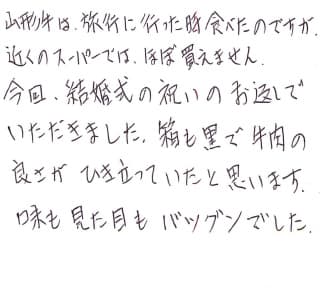 山形牛は、旅行に行った時食べたのですが、
近くのスーパーでは、ほぼ買えません。
今回、結婚式の祝いのお返しで
いただきました。箱も黒で牛肉の
良さがひき立っていたと思います。
味も見た目もバツグンでした。